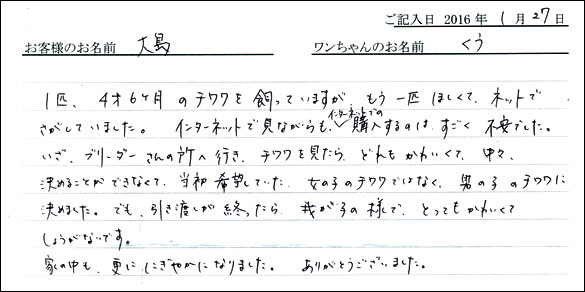 ご記入日 2016 年 1 月 27 日
お客様のお名前 大島 ワンちゃんのお名前 くう
1匹、4才6ヶ月 のチワワを 飼っていますが、もう一匹 ほしくて、ネットで
さがしていました。 インターネットで見ながらも、インターネットでの購入するのは、すごく 不安でした。
いざ、ブリーダーさんの所へ行き、チワワを見たら、どれもかわいくて、中々、
決めることができなくて、当初 希望していた、女の子のチワワではなく、男の子のチワワに
決めました。でも、引き渡しが 終ったら、我が子の様で、とってもかわいくて
しょうがないです。
家の中も、更に にぎやかになりました。 ありがとうございました。